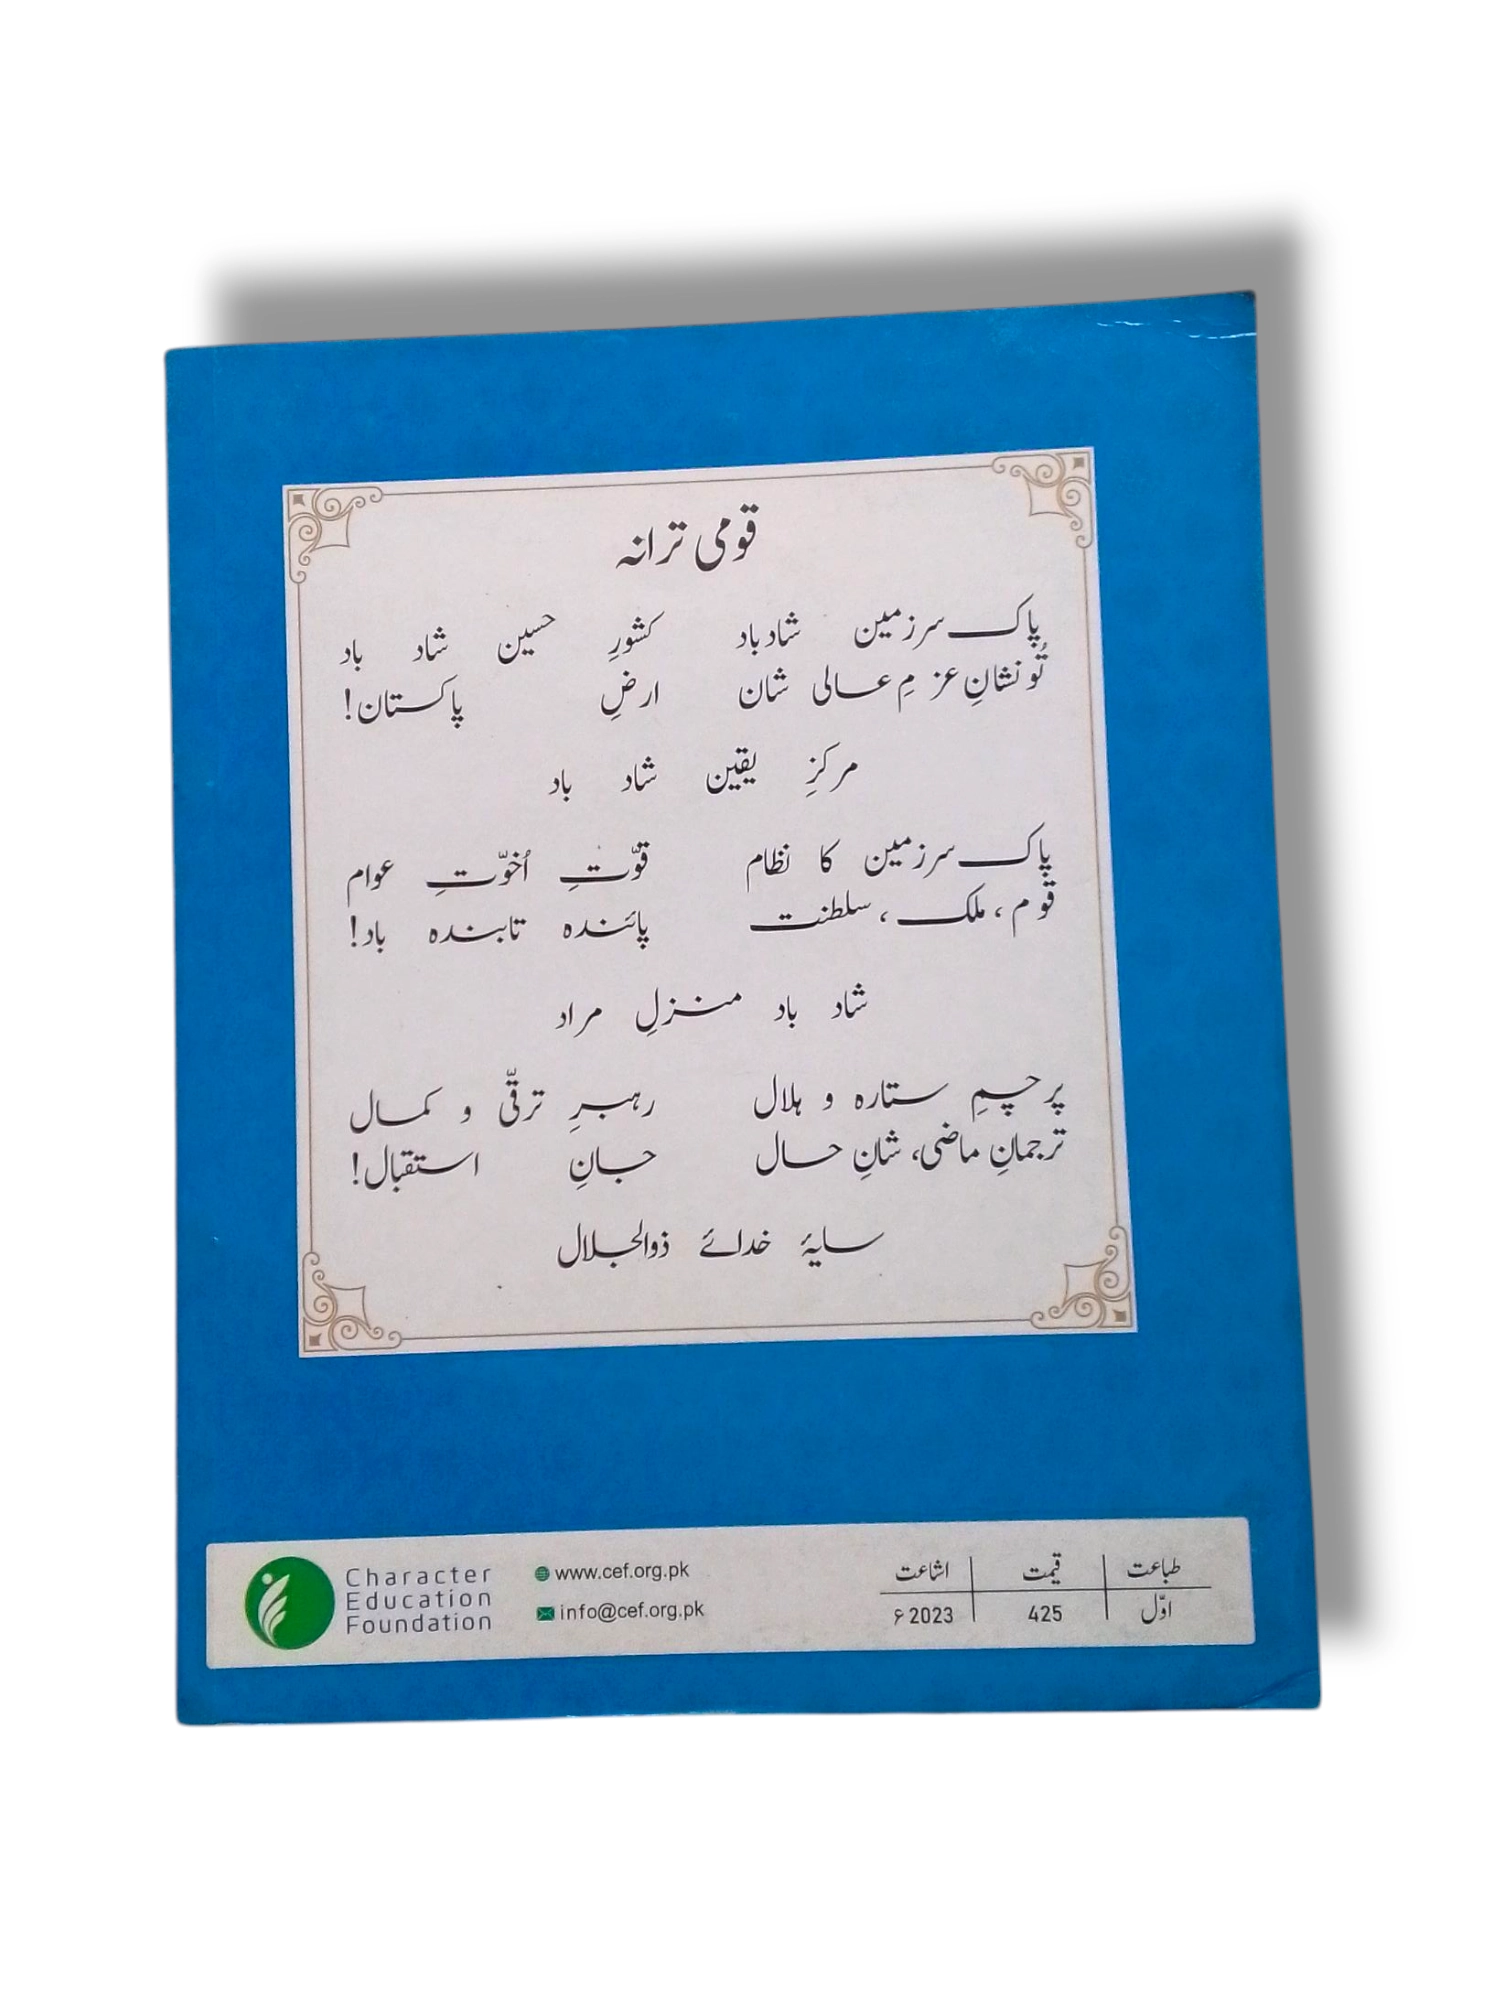 قومی ترانہ
پاک سرزمین شاد باد کشورِ حسین شاد باد
تُو نشانِ عزمِ عالی شان ارضِ پاکستان!
مرکزِ یقین شاد باد
پاک سرزمین کا نظام قوّتِ اُخوّتِ عوام
قوم، ملک، سلطنت پائندہ تابندہ باد!
شاد باد منزلِ مراد
پرچمِ ستارہ و ہلال رہبرِ ترقّی و کمال
ترجمانِ ماضی، شانِ حال جانِ استقبال!
سایۂ خدائے ذوالجلال
Character
Education
Foundation
www.cef.org.pk
info@cef.org.pk
طباعت قیمت اشاعت
اوّل 425 2023ء